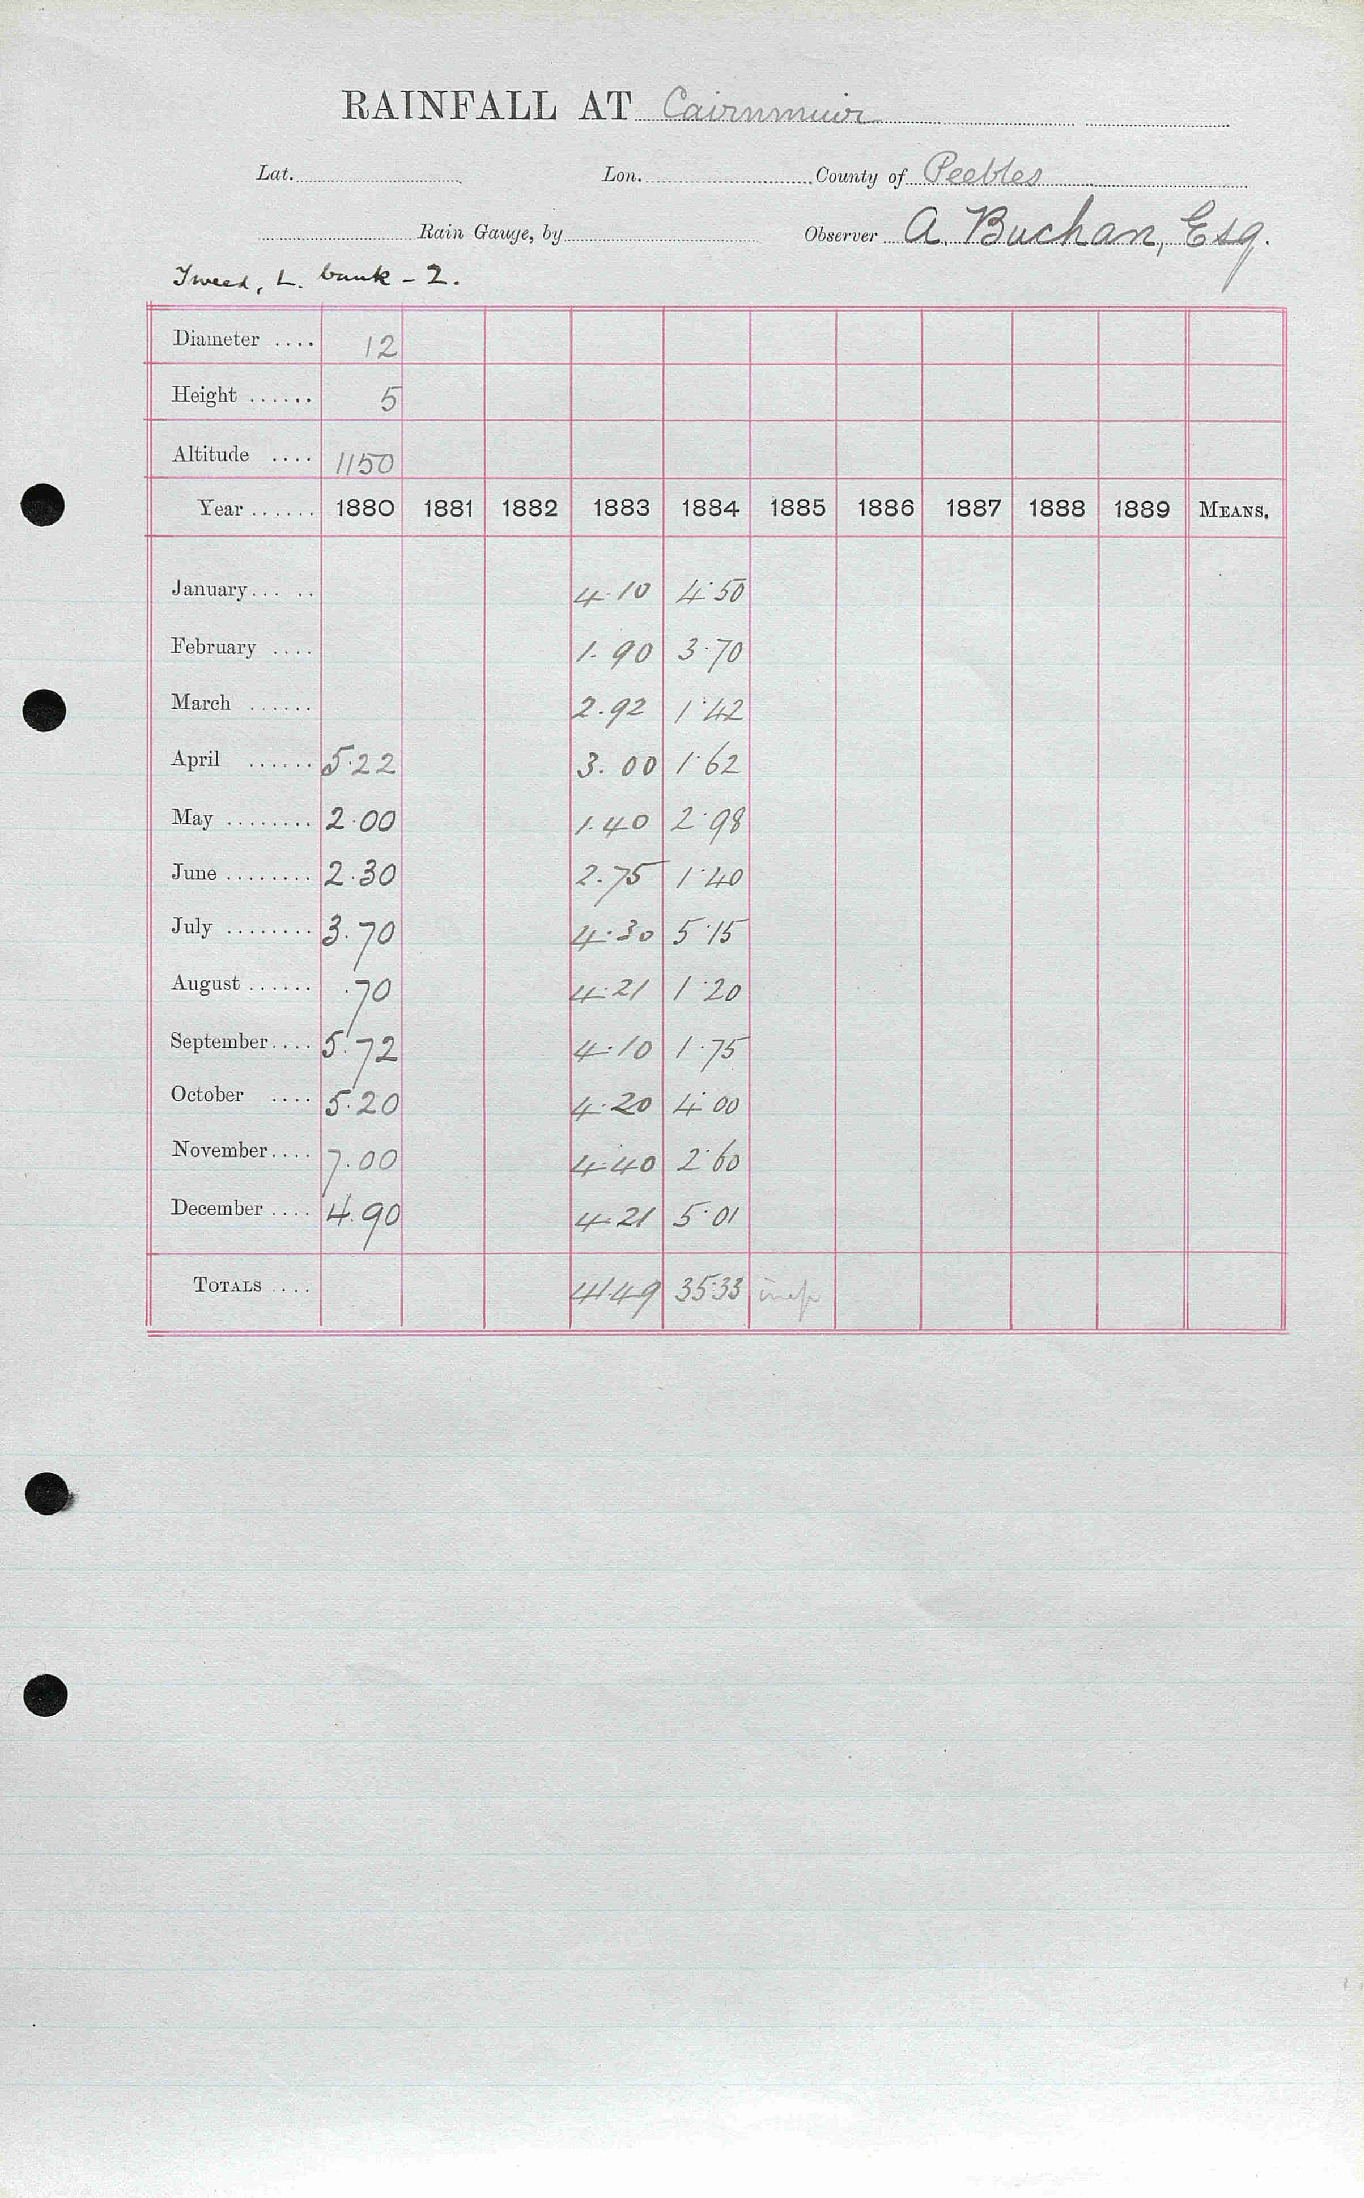 RAINFALL AT Cairnmuir
Lat. Lon. County of Peebles
Rain Gauge, by Observer A. Buchan, Esq.
Tweed, L. bank - 2.
Diameter .... 12
Height ...... 5
Altitude .... 1150
Year ...... 1880 1881 1882 1883 1884 1885 1886 1887 1888 1889 MEANS.
January... .. 4.10 4.50
February .... 1.90 3.70
March ...... 2.92 1.42
April ...... 5.22 3.00 1.62
May ........ 2.00 1.40 2.98
June ........ 2.30 2.75 1.40
July ........ 3.70 4.30 5.15
August ...... .70 4.21 1.20
September.... 5.72 4.10 1.75
October .... 5.20 4.20 4.00
November.... 7.00 4.40 2.60
December .... 4.90 4.21 5.01
TOTALS .... 41.49 35.33